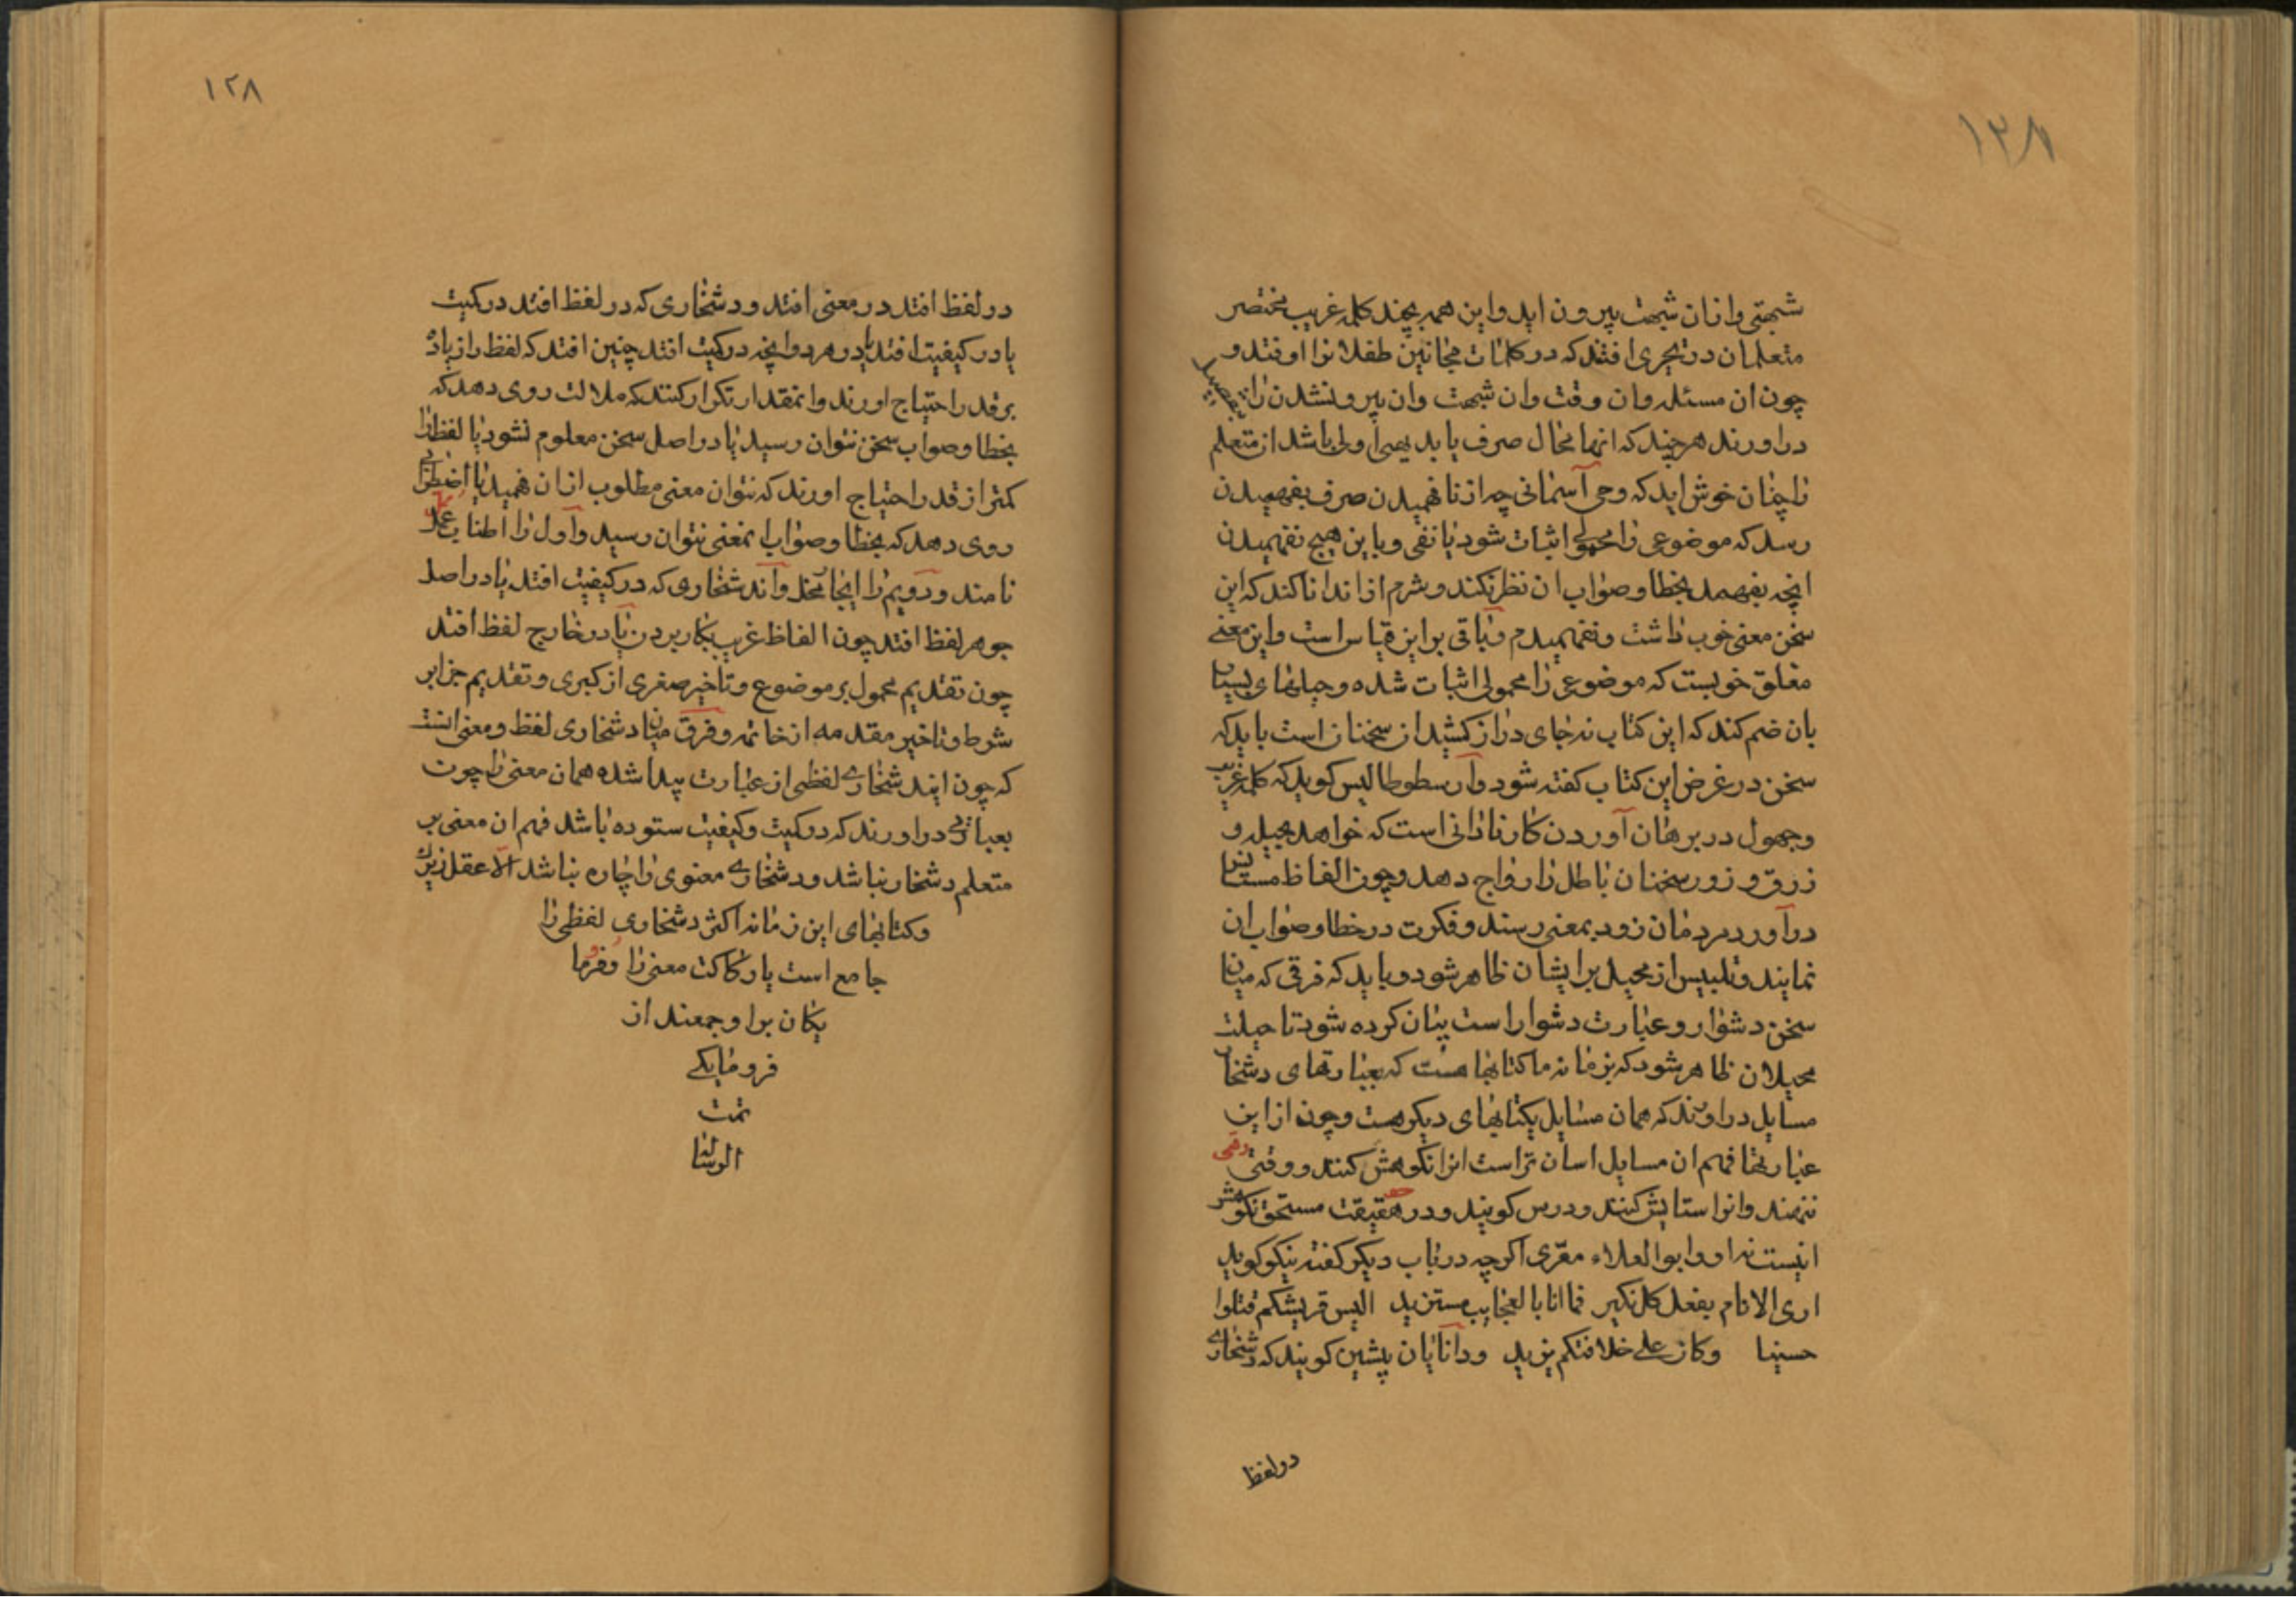 ١٢٨
شبهتی وازان شبهت بیرون اید واین همه بچند کلمه غریب مختصر
متعلمان در تحیری افتند که در کلمات مجانین طفلانرا اوفتد و
چون ان مسئله وان وقت وان شبهت وان بیرونشدن را بتفصیل
دراورند هرچند که انها محال صرف باید اولی باشد از متعلم
را چنان خوش اید که وحی آسمانی چه از نافهمیدن صرف بفهمیدن
رسد که موضوعی را محمولی اثبات شود یا نفی وباین هیچ نفهمیدن
انچه بفهمد بخطا وصواب ان نظر نکند وشرم از اندانا کند که این
سخن معنی خوب داشت ونفهمیدم وباقی براین قیاس است واین معنی
مغلق خوبست که موضوعی را محمولی اثبات شده وحیلتهای بسیار
بان ضم کند که این کتاب نه جای دراز کشیدن سخنان است باید که
سخن در غرض این کتاب کفته شود وآرسطوطالیس کوید که کلمه غریب
وجهول در برهان آوردن کار نادانی است که خواهد بحیله و
زرق وزور سخنان باطل را رواج دهد وچون الفاظ مستانس
درآورد مردمان زود بمعنی رسند وفکرت در خطا وصواب ان
نمایند وتلبیس از محیل برایشان ظاهر شود وباید که فرقی که میان
سخن دشوار وعبارت دشوار است بیان کرده شود تا حیلت
محیلان ظاهر شود که بزمانه ما کتابها هست که بعبارتهای دشخار
مسایل دراورند که همان مسایل بکتابهای دیکر هست وچون از این
عبارتها فهم ان مسایل اسان تر است انرا نکوهش کنند و وقعی
ننهند وانرا ستایش کنند ودرس کویند ودر حقیقت مستحق نکوهش
انیست نه او وابوالعلاء معرّی اکرچه در باب دیکر کفته نیکو کوید
اری الانام یفعل کل نکیر فما انا بالعجایب مستزید الیس قریشکم قتلوا
حسینا وکان علی خلافتکم یزید ودانایان پیشین کویند که دشخاری
در لفظ
١٢٨
در لفظ افتد در معنی افتد ودشخاری که در لفظ افتد در کمیت
یا در کیفیت افتد یا در هر دو وانچه در کمیت افتد چنین افتد که لفظ را زیاده
بر قدر احتیاج اورند وانمقدار تکرار کنند که ملالت روی دهد که
بخطا وصواب سخن نتوان رسید یا در اصل سخن معلوم نشود یا لفظ را
کمتر از قدر احتیاج اورند که نتوان معنی مطلوب ازان فهمید یا اضطرابی
روی دهد که بخطا وصواب المعنی نتوان رسید وآول را اطناب ممل
نامند ودویم را ایجاز مخل وآن دشخاری که در کیفیت افتد یا در اصل
جوهر لفظ افتد چون الفاظ غریب بکار بردن یا در خارج لفظ افتد
چون تقدیم محمول بر موضوع وتاخیر صغری از کبری وتقدیم جزا بر
شرط وتاخیر مقدمه از خاتمه وفرق میان دشخاری لفظ ومعنی انست
که چون ایند شخاری لفظی از عبارت پیدا شده همان معنی را چون
بعبارتی دراورند که در کمیت وکیفیت ستوده باشد فهم ان معنی بر
متعلم دشخار نباشد ودشخاری معنوی را چاره نباشد الّا عقل زیرک
وکتابهای این زمانه اکثر دشخاری لفظی را
جامع است با رکاکت معنی را وفروما
یکان برا وجمعند از
فرومایکی
تمت
الرسالة